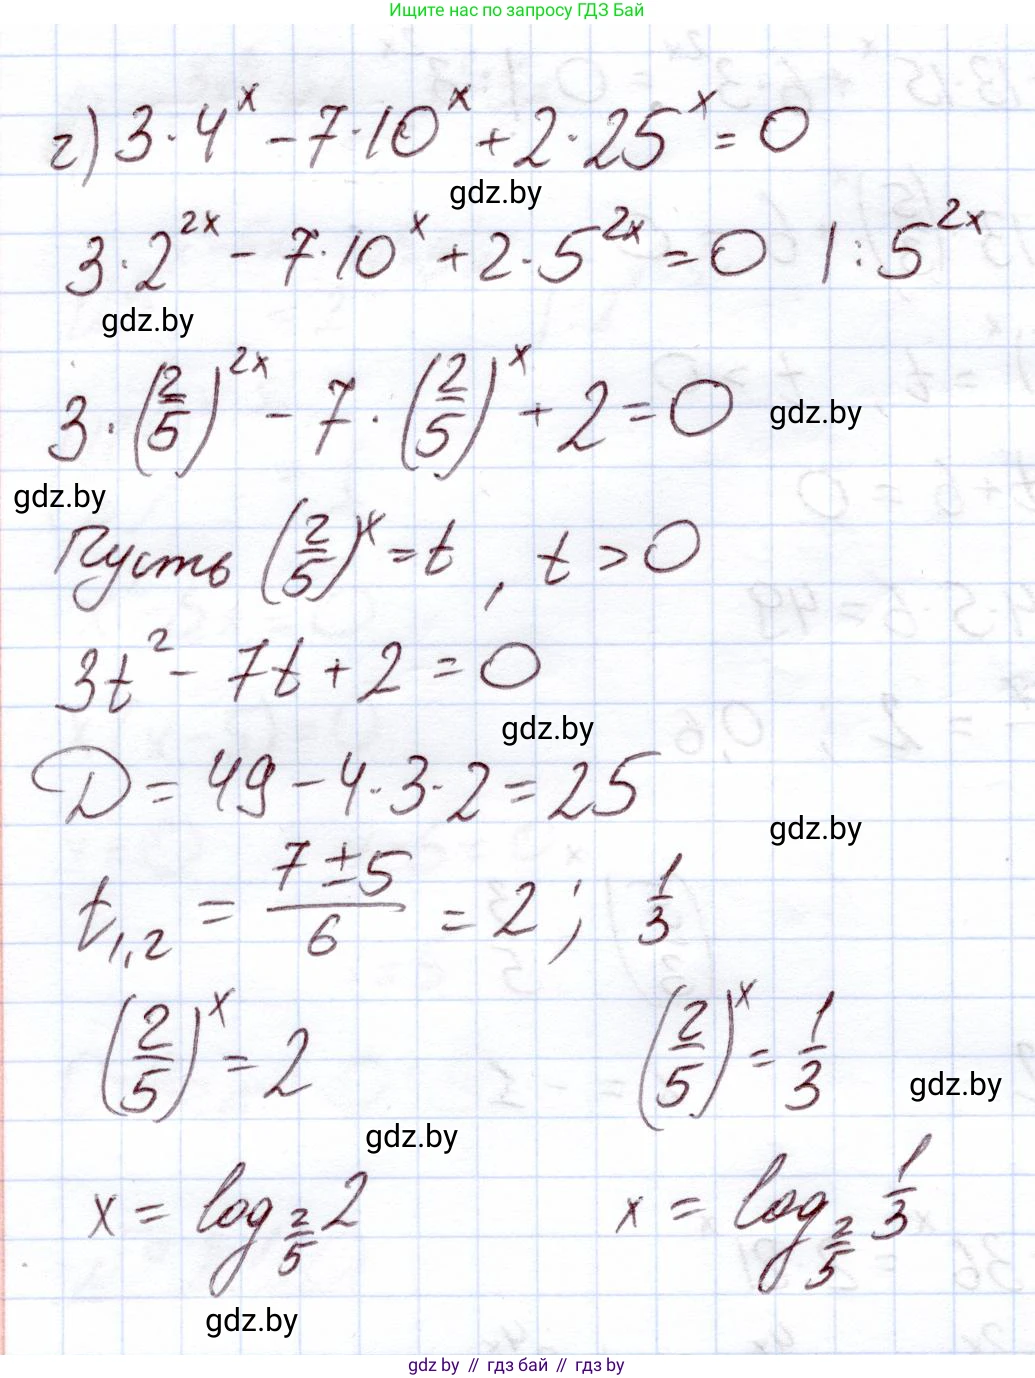 Ищите нас по запросу ГДЗ Бай
г) 3·4^x − 7·10^x + 2·25^x = 0
gdz.by
3·2^{2x} − 7·10^x + 2·5^{2x} = 0 |:5^{2x}
gdz.by
3·(2/5)^{2x} − 7·(2/5)^x + 2 = 0
gdz.by
gdz.by
Пусть (2/5)^x = t, t > 0
3t² − 7t + 2 = 0
gdz.by
D = 49 − 4·3·2 = 25
gdz.by
t_{1,2} = (7 ± 5)/6 = 2; 1/3
(2/5)^x = 2 (2/5)^x = 1/3
gdz.by
gdz.by
x = log_{2/5} 2 x = log_{2/5} 1/3
gdz.by
gdz.by // гдз бай // гдз by